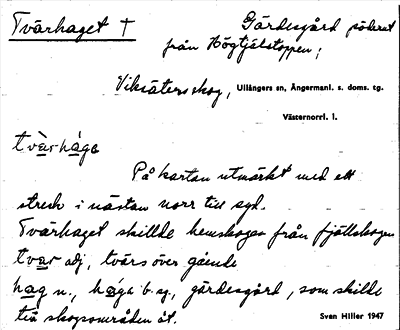 Tvärhaget † Gärdesgård söderut
från Högtjälstoppen;
Viksäters skog, Ullångers sn, Ångermanl. s. doms. tg.
Västernorrl. l.
tvàrhága
På kartan utmärkt med ett
streck i nästan norr till syd.
Tvärhaget skillde hemskogen från fjällskogen
tvar adj, tvärs över gående
hag n., hága b. sg., gärdesgård, som skilde
två skogsområden åt. Sven Hiller 1947